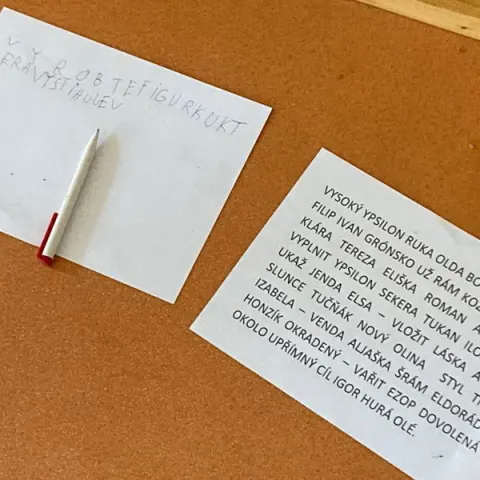 VYROBTEFIGURKUKT
ERÁVYSTIHUJEV
VYSOKÝ YPSILON RUKA OLDA
FILIP IVAN GRÓNSKO UŽ RÁM
KLÁRA TEREZA ELIŠKA ROMAN
VYPLNIT YPSILON SEKERA TUKAN
UKAŽ JENDA ELSA – VLOŽIT LÁSKA
SLUNCE TUČŇÁK NOVÝ OLINA STYL
IZABELA – VENDA ALJAŠKA ŠRÁM
HONZÍK OKRADENÝ – VAŘIT EZOP DOVOLENÁ
OKOLO UPŘÍMNÝ CÍL IGOR HURÁ OLÉ.